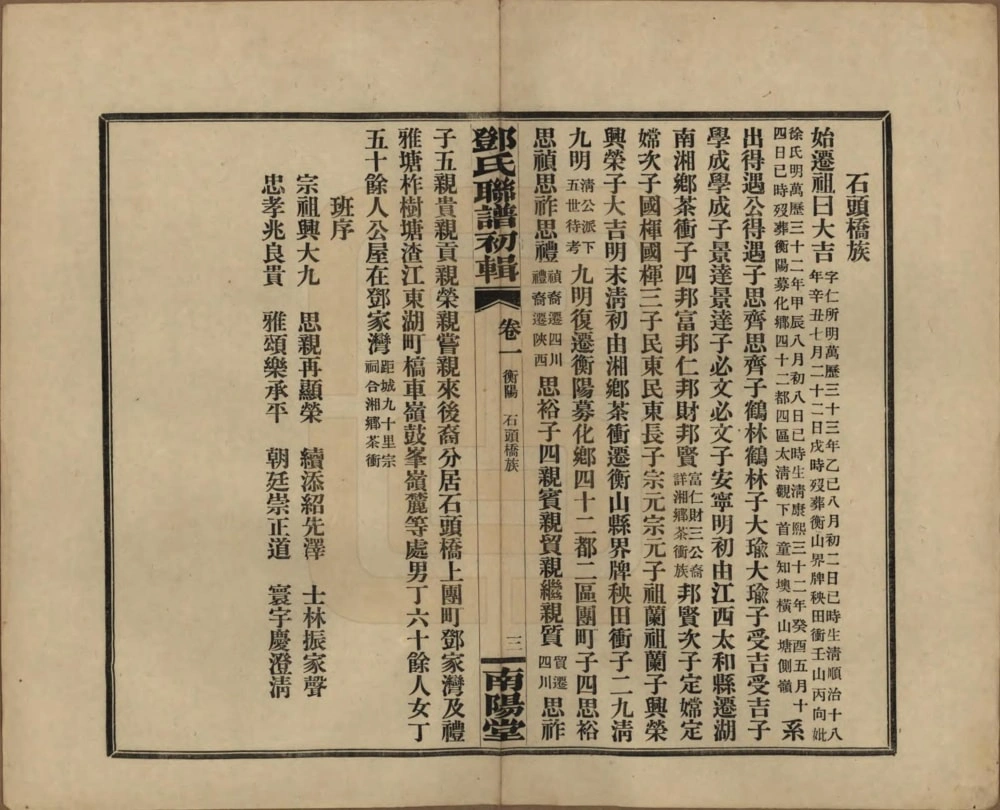 石頭橋族
始遷祖曰大吉 字仁所明萬歷三十三年乙巳八月初二日巳時生淸順治十八
年辛丑七月二十二日戌時歿葬衡山界牌秧田衝壬山丙向妣
徐氏明萬歷三十二年甲辰八月初八日巳時生淸康熙三十二年癸酉五月十
四日巳時歿葬衡陽募化鄕四十二都四區太淸觀下首童知墺橫山塘側嶺 系
出得遇公得遇子思齊思齊子鶴林鶴林子大瑜大瑜子受吉受吉子
學成學成子景達景達子必文必文子安寧明初由江西太和縣遷湖
南湘鄕茶衝子四邦富邦仁邦財邦賢 富仁財三公裔
詳湘鄕茶衝族 邦賢次子定嫦定
嫦次子國楎國楎三子民東民東長子宗元宗元子祖蘭祖蘭子興榮
興榮子大吉明末淸初由湘鄕茶衝遷衡山縣界牌秧田衝子二九淸
九明 淸公派下
五世待考 九明復遷衡陽募化鄕四十二都二區團町子四思裕
思禎思祚思禮 禎裔遷四川
禮裔遷陝西 思裕子四親賓親貿親繼親質 貿遷
四川 思祚
鄧氏聯譜初輯 卷一 衡陽 石頭橋族 三 南陽堂
子五親貴親貢親榮親嘗親來後裔分居石頭橋上團町鄧家灣及禮
雅塘柞樹塘渣江東湖町槁車嶺鼓峯嶺麓等處男丁六十餘人女丁
五十餘人公屋在鄧家灣 距城九十里宗
祠合湘鄕茶衝
班序
宗祖興大九 思親再顯榮 續添紹先澤 士林振家聲
忠孝兆良貴 雅頌樂承平 朝廷崇正道 寰宇慶澄淸